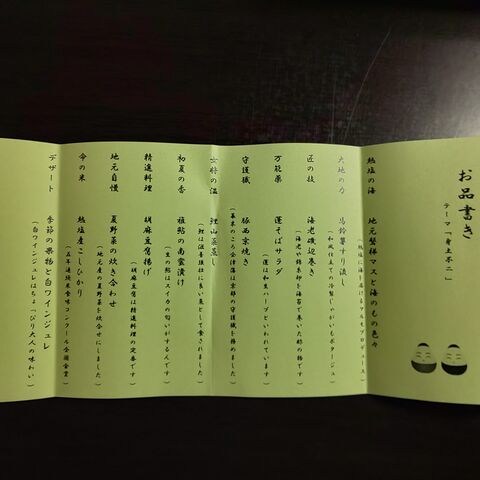 お品書き
テーマ「身土不二」
熱塩の海 地元蟹祥マスと海のもの色々
大地の力 馬鈴薯すり流し
（和風仕立ての冷製じゃがいもポタージュ）
匠の技 海老磯辺巻き
万能薬 蓮そばサラダ
（蓮は和生ハーブといわれています）
守護職 豚西京焼き
（幕末のころ会津藩は京都の守護職を務めました）
女将の温 鯉山蒸蒸し
初夏の香 稚鮎の南蛮漬け
（生の鮎はスイカの匂いがするんです）
精進料理 胡麻豆腐揚げ
（胡麻豆腐は精進料理の定番です）
地元自慢 夏野菜の炊き合わせ
（地元産の夏野菜を炊合せにしました）
今の米 熱塩産こしひかり
デザート 季節の果物と白ワインジュレ
（白ワインジュレはちょっぴり大人の味わい）